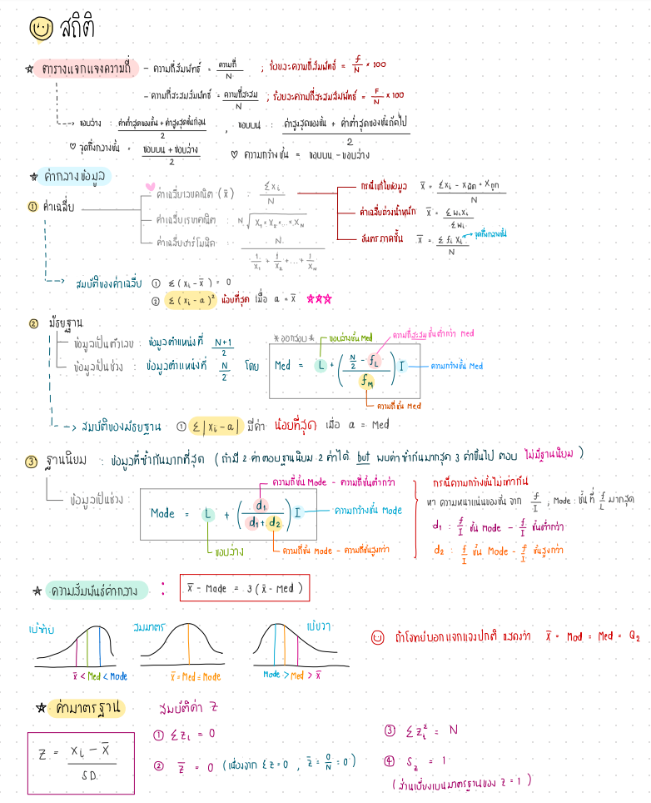 สถิติ
☆ ตารางแจกแจงความถี่ - ความถี่สัมพัทธ์ = ความถี่/N ; ร้อยละความถี่สัมพัทธ์ = f/N × 100
- ความถี่สะสมสัมพัทธ์ = ความถี่สะสม/N ; ร้อยละความถี่สะสมสัมพัทธ์ = F/N × 100
ขอบล่าง : ค่าต่ำสุดของชั้น + ค่าสูงสุดชั้นก่อน/2 , ขอบบน : ค่าสูงสุดของชั้น + ค่าต่ำสุดของชั้นถัดไป/2
♡ จุดกึ่งกลางชั้น = ขอบบน + ขอบล่าง/2 ♡ ความกว้างชั้น = ขอบบน - ขอบล่าง
☆ ค่ากลางข้อมูล
① ค่าเฉลี่ย
ค่าเฉลี่ยเลขคณิต (x̄) : Σxi/N
ค่าเฉลี่ยเรขาคณิต : N√X₁·X₂·...·X_N
ค่าเฉลี่ยฮาร์โมนิค : N / 1/X₁ + 1/X₂ + ... + 1/X_N
กรณีแก้ไขข้อมูล x̄ = Σxi - xผิด + xถูก/N
ค่าเฉลี่ยถ่วงน้ำหนัก x̄ = Σwixi/Σwi
อันตรภาคชั้น x̄ = Σfixi/N จุดกึ่งกลางชั้น
สมบัติของค่าเฉลี่ย ① Σ(xi - x̄) = 0
② Σ(xi - a)² น้อยที่สุด เมื่อ a = x̄ ★★★
② มัธยฐาน
ข้อมูลเป็นตัวเลข : ข้อมูลตำแหน่งที่ N+1/2
ข้อมูลเป็นช่วง : ข้อมูลตำแหน่งที่ N/2 โดย
* ออกสอบ * ขอบล่างชั้น Med ความถี่สะสมชั้นต่ำกว่า Med
Med = L + (N/2 - fL / fM) I ความกว้างชั้น Med
ความถี่ชั้น Med
สมบัติของมัธยฐาน ① Σ|xi - a| มีค่า น้อยที่สุด เมื่อ a = Med
③ ฐานนิยม : ข้อมูลที่ซ้ำกันมากที่สุด (ถ้ามี 2 ค่าตอบฐานนิยม 2 ค่าได้ but พบค่าซ้ำกันมากสุด 3 ค่าขึ้นไป ตอบ ไม่มีฐานนิยม)
ความถี่ชั้น Mode - ความถี่ชั้นต่ำกว่า
ข้อมูลเป็นช่วง : Mode = L + (d₁ / d₁+d₂) I ความกว้างชั้น Mode
ขอบล่าง ความถี่ชั้น Mode - ความถี่ชั้นสูงกว่า
กรณีความกว้างชั้นไม่เท่ากัน
หา ความหนาแน่นของชั้น จาก f/I , Mode : ชั้นที่ f/I มากสุด
d₁ : f/I ชั้น Mode - f/I ชั้นต่ำกว่า
d₂ : f/I ชั้น Mode - f/I ชั้นสูงกว่า
★ ความสัมพันธ์ค่ากลาง : x̄ - Mode = 3(x̄ - Med)
เบ้ซ้าย สมมาตร เบ้ขวา
x̄ < Med < Mode x̄ = Med = Mode Mode > Med > x̄
ถ้าโจทย์บอกแจกแจงปกติ แสดงว่า x̄ = Mod = Med = Q₂
★ ค่ามาตรฐาน
Z = Xi - X̄/S.D.
สมบัติค่า Z
① ΣZi = 0
② Z̄ = 0 (เนื่องจาก ΣZ = 0 , Z̄ = 0/N = 0)
③ ΣZi² = N
④ Sz = 1
(ส่วนเบี่ยงเบนมาตรฐานของ Z = 1)